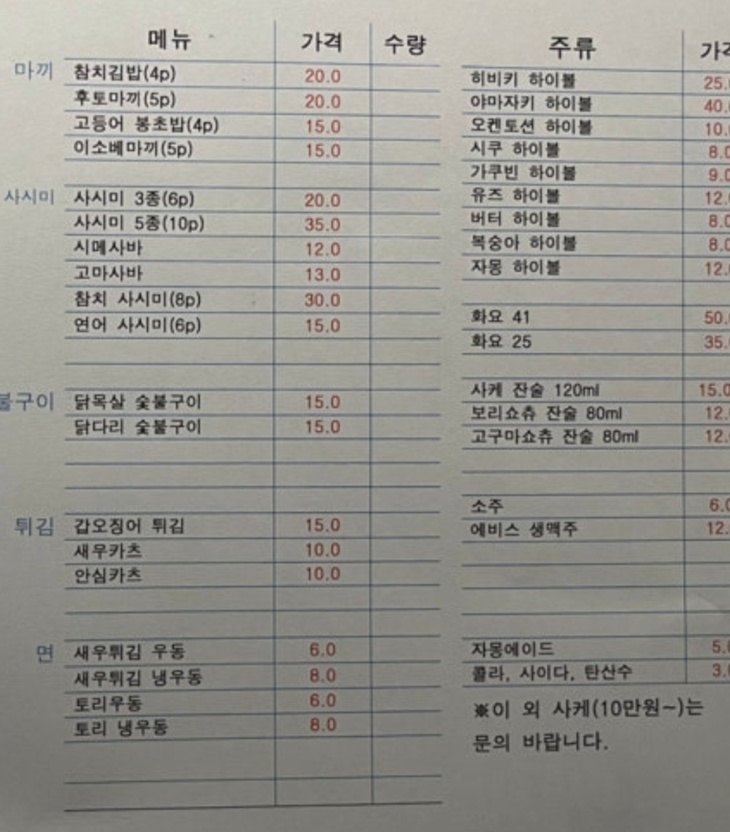 메뉴 가격 수량
마끼 참치김밥(4p) 20.0
후토마끼(5p) 20.0
고등어 봉초밥(4p) 15.0
이소베마끼(5p) 15.0
사시미 사시미 3종(6p) 20.0
사시미 5종(10p) 35.0
시메사바 12.0
고마사바 13.0
참치 사시미(8p) 30.0
연어 사시미(6p) 15.0
불구이 닭목살 숯불구이 15.0
닭다리 숯불구이 15.0
튀김 갑오징어 튀김 15.0
새우카츠 10.0
안심카츠 10.0
면 새우튀김 우동 6.0
새우튀김 냉우동 8.0
토리우동 6.0
토리 냉우동 8.0
주류 가격
히비키 하이볼 25.0
야마자키 하이볼 40.0
오켄토션 하이볼 10.0
시쿠 하이볼 8.0
가쿠빈 하이볼 9.0
유즈 하이볼 12.0
버터 하이볼 8.0
복숭아 하이볼 8.0
자몽 하이볼 12.0
화요 41 50.0
화요 25 35.0
사케 잔술 120ml 15.0
보리쇼츄 잔술 80ml 12.0
고구마쇼츄 잔술 80ml 12.0
소주 6.0
에비스 생맥주 12.0
자몽에이드 5.0
콜라, 사이다, 탄산수 3.0
※이 외 사케(10만원~)는
문의 바랍니다.